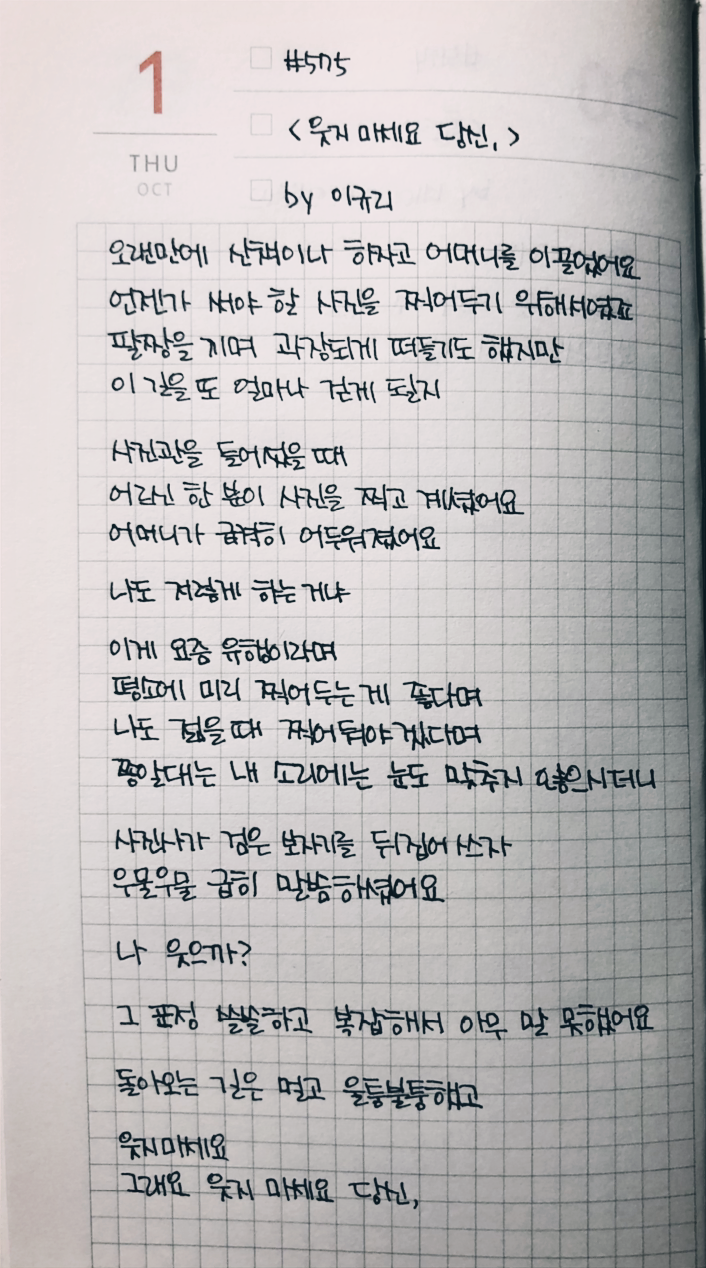 1
THU
OCT
#575
<웃지 마세요 당신,>
by 이규리
오랜만에 산책이나 하자고 어머니를 이끌었어요
언젠가 써야 할 사진을 찍어두기 위해서였죠
팔짱을 끼며 과장되게 떠들기도 했지만
이 길을 또 얼마나 걷게 될지
사진관을 들어섰을 때
어르신 한 분이 사진을 찍고 계셨어요
어머니가 급격히 어두워졌어요
나도 저렇게 하는 거냐
이게 요즘 유행이라며
평소에 미리 찍어두는 게 좋다며
나도 젊을 때 찍어둬야겠다며
쫑알대는 내 소리에는 눈도 맞추지 않으시더니
사진사가 검은 보자기를 뒤집어 쓰자
우물우물 급히 말씀하셨어요
나 웃으까?
그 표정 쓸쓸하고 복잡해서 아무 말 못했어요
돌아오는 길은 멀고 울퉁불퉁했고
웃지 마세요
그래요 웃지 마세요 당신,